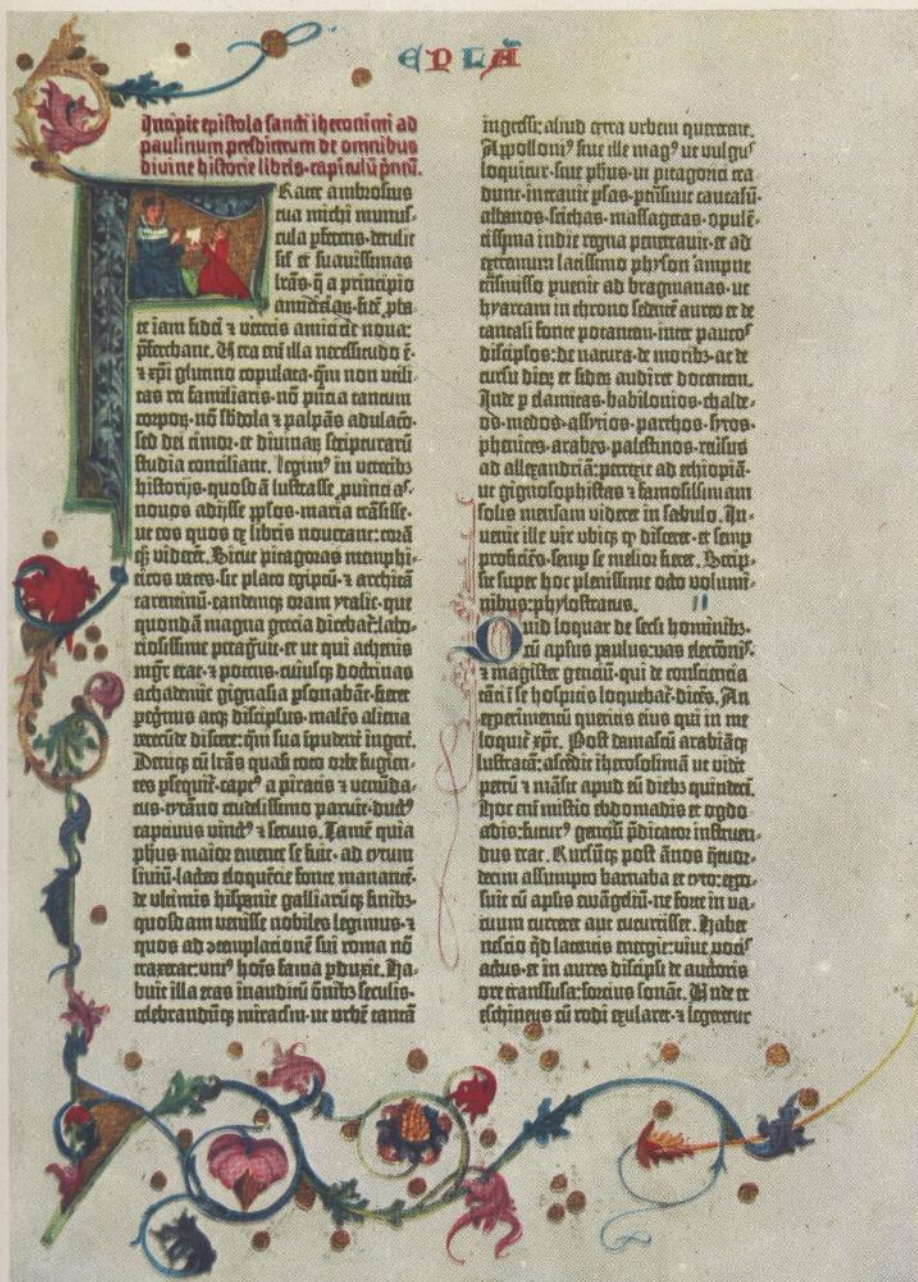 EPLĀ
Incipit epistola sancti iheronimi ad
paulinum presbiterum de omnibus
divine historie libris. capitulū pmū.
Frater ambrosius
tua michi munus-
cula pferens. detulit
sił et suavissimas
lr̄as. q̄ a principio
amicicia⁊. fidē pba-
te iam fidei ⁊ veteris amicicie nova:
pferebant. Vera eni illa necessitudo ē.
⁊ xp̄i glutino copulata. qm̄ non utili-
tas rei familiaris. nō pn̄cia tantum
corpo⁊. nō sbdola ⁊ palpās adulaco.
sed dei timor. et divina⁊ scripturarū
studia conciliant. Legim⁹ in veteribȝ
historijs. quosdā lustrasse. puincias.
novos adijsse pplos. maria trāsisse.
ut eos quos ex libris noverant: corā
qȝ viderēt. Sicut pitagoras memphi-
ticos vates. sic plato egiptū. ⁊ architā
tarentinū. eandemqȝ oram ytalie. que
quondā magna grecia dicebat: labo-
riosissime peragvit. et ut qui athenis
mgr̄ erat. ⁊ potens. cuiusqȝ doctrinas
achademie gignasia psonabāt. fieret
pegrinus atqȝ discipulus. malēs aliena
verecūde discere: qm̄ sua īpudent̄ ingere.
Deniqȝ cū lr̄as quasi toto orbe fugien-
tes psequit. capt⁹ a piratis ⁊ venūda-
tus. tyrāno crudelissimo paruit. duct⁹
captivus vinct⁹ ⁊ servus. Tamē quia
phus maior emente se fuit. ad tytum
livium. lacteo eloquētie fonte manantē.
de ultimis hispanie galliarūqȝ finibȝ.
quosdam venisse nobiles legimus. ⁊
quos ad ɔtemplationē sui roma nō
traxerat: uni⁹ hoīs fama pduxit. Ha-
buit illa etas inauditū ōnibȝ seculis.
celebrandūqȝ miraclm. ut urbē tantā
ingressi: aliud extra urbem quererent.
Appolloni⁹ sive ille mag⁹ ut vulgus
loquitur. sive phus. ut pitagorici tra-
dunt. intravit psas. ptrāsivit caucasū.
albanos. scithas. massagetas. opulē-
tissima indie regna penetravit. et ad
extremum latissimo physon ampne
trāsmisso pvenit ad bragmanas. ut
hyarcam in throno sedentē aureo et de
tantali fonte potantem. inter paucos
discipłos: de natura. de moribȝ. ac de
cursu die⁊ et side⁊ audiret docentem.
Inde p elamitas. babilonios. chalde-
os. medos. assyrios. parthos. syros.
phenices. arabes. palestinos. reūsus
ad allexandriā: perrexit ad ethiopiā.
ut gignosophistas ⁊ famosissimam
solis mensam videret in sabulo. In-
venit ille vir ubiqȝ qd disceret. et semp
proficiēs. semp se melior fieret. Scrip-
sit super hoc plenissime octo volumi-
nibus: phylostratus. II
Quid loquar de secli hominibȝ.
cū aplus paulus: vas electōnis.
⁊ magister gentiū. qui de consciencia
tāti ī se hospitis loquebat. dicēs. An
experimentū queritis eius qui in me
loquit̄ xp̄c. Post damascū arabiāqȝ
lustratā: ascēdit iherosolimā ut vidēt
petrū ⁊ māsit apud eū diebȝ quindeci.
Hoc eni misterio ebdomadis et ogdo-
adis: futur⁹ gentiū p̄dicator instruen-
dus erat. Rursūqȝ post ānos q̄tuor-
decim assumpto barnaba et tyto: expo-
suit cū aplis ewāgeliū. ne forte in va-
cuum curreret aut cucurrisset. Habet
nescio qd latentis energie: vive vocis
actus. et in aures discipli de auctoris
ore transfusa: fortius sonāt. Unde et
eschineus cū rodi exularet. ⁊ legeretur